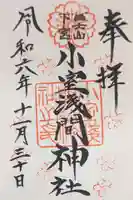 奉拝
富士山
下宮
小室浅間神社
令和六年十一月三十日